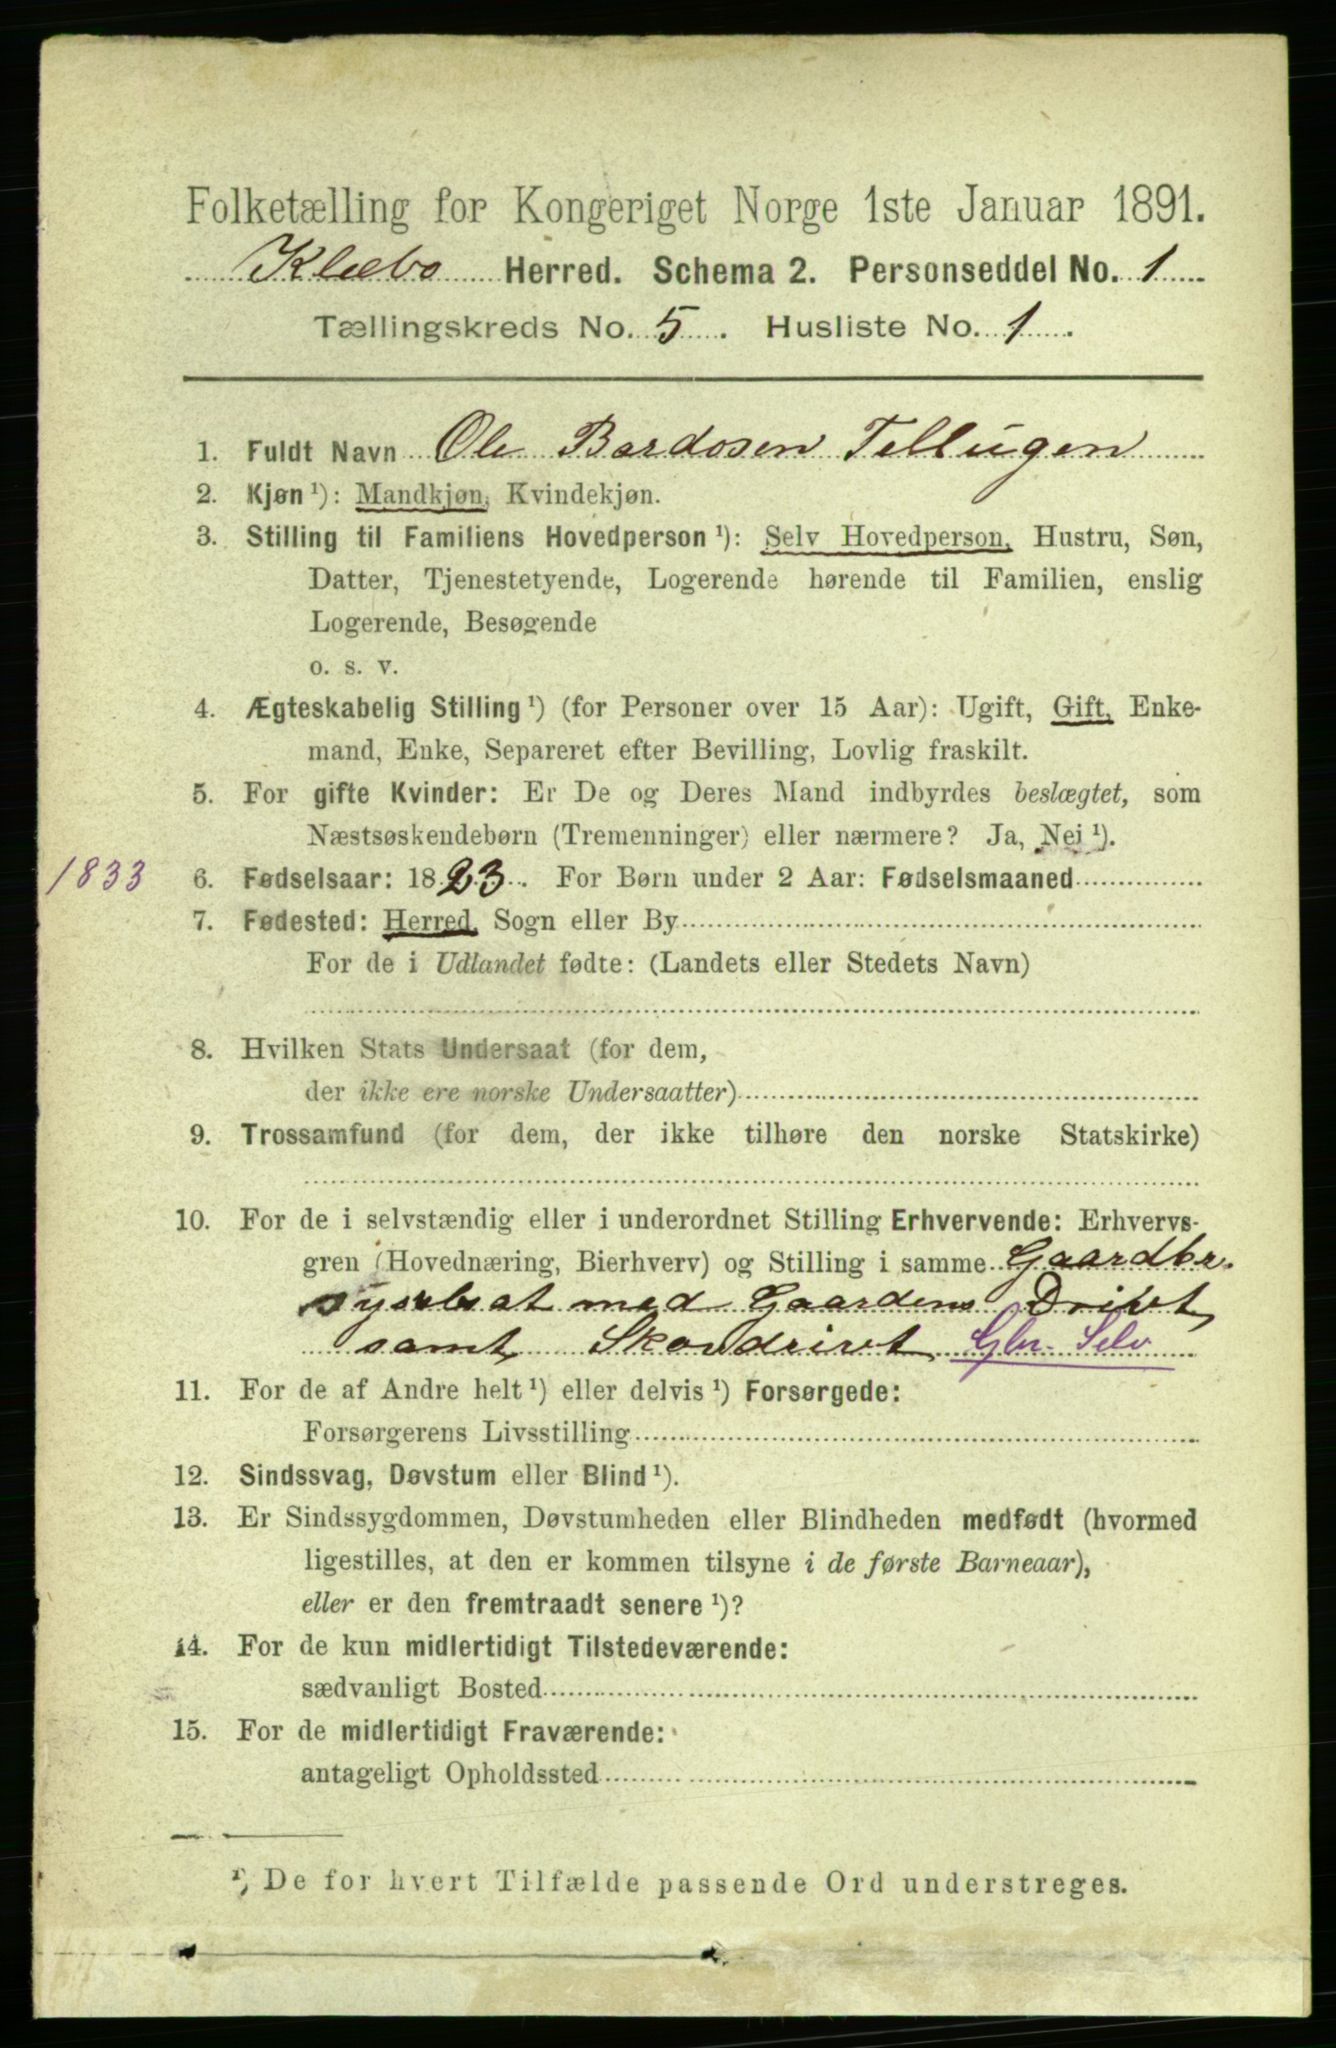 Folketælling for Kongeriget Norge 1ste Januar 1891.
Klæbo Herred. Schema 2. Personseddel No. 1
Tællingskreds No. 5. Husliste No. 1.
1. Fuldt Navn Ole Bardosen Tellugen
2. Kjøn ¹): Mandkjøn, Kvindekjøn.
3. Stilling til Familiens Hovedperson ¹): Selv Hovedperson, Hustru, Søn,
Datter, Tjenestetyende, Logerende hørende til Familien, enslig
Logerende, Besøgende
o. s. v.
4. Ægteskabelig Stilling ¹) (for Personer over 15 Aar): Ugift, Gift, Enke-
mand, Enke, Separeret efter Bevilling, Lovlig fraskilt.
5. For gifte Kvinder: Er De og Deres Mand indbyrdes beslægtet, som
Næstsøskendebørn (Tremenninger) eller nærmere? Ja, Nei ¹).
1833 6. Fødselsaar: 1823. For Børn under 2 Aar: Fødselsmaaned
7. Fødested: Herred, Sogn eller By
For de i Udlandet fødte: (Landets eller Stedets Navn)
8. Hvilken Stats Undersaat (for dem,
der ikke ere norske Undersaatter)
9. Trossamfund (for dem, der ikke tilhøre den norske Statskirke)
10. For de i selvstændig eller i underordnet Stilling Erhvervende: Erhvervs-
gren (Hovednæring, Bierhverv) og Stilling i samme Gaardbr.
sysselsat med Gaardens Drivt
samt Skovdrivt Gbr. Selv
11. For de af Andre helt ¹) eller delvis ¹) Forsørgede:
Forsørgerens Livsstilling
12. Sindssvag, Døvstum eller Blind ¹).
13. Er Sindssygdommen, Døvstumheden eller Blindheden medfødt (hvormed
ligestilles, at den er kommen tilsyne i de første Barneaar),
eller er den fremtraadt senere ¹)?
14. For de kun midlertidigt Tilstedeværende:
sædvanligt Bosted
15. For de midlertidigt Fraværende:
antageligt Opholdssted
¹) De for hvert Tilfælde passende Ord understreges.